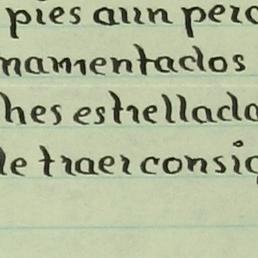 pies aun pero
namentados
hes estrellado
le traer consig